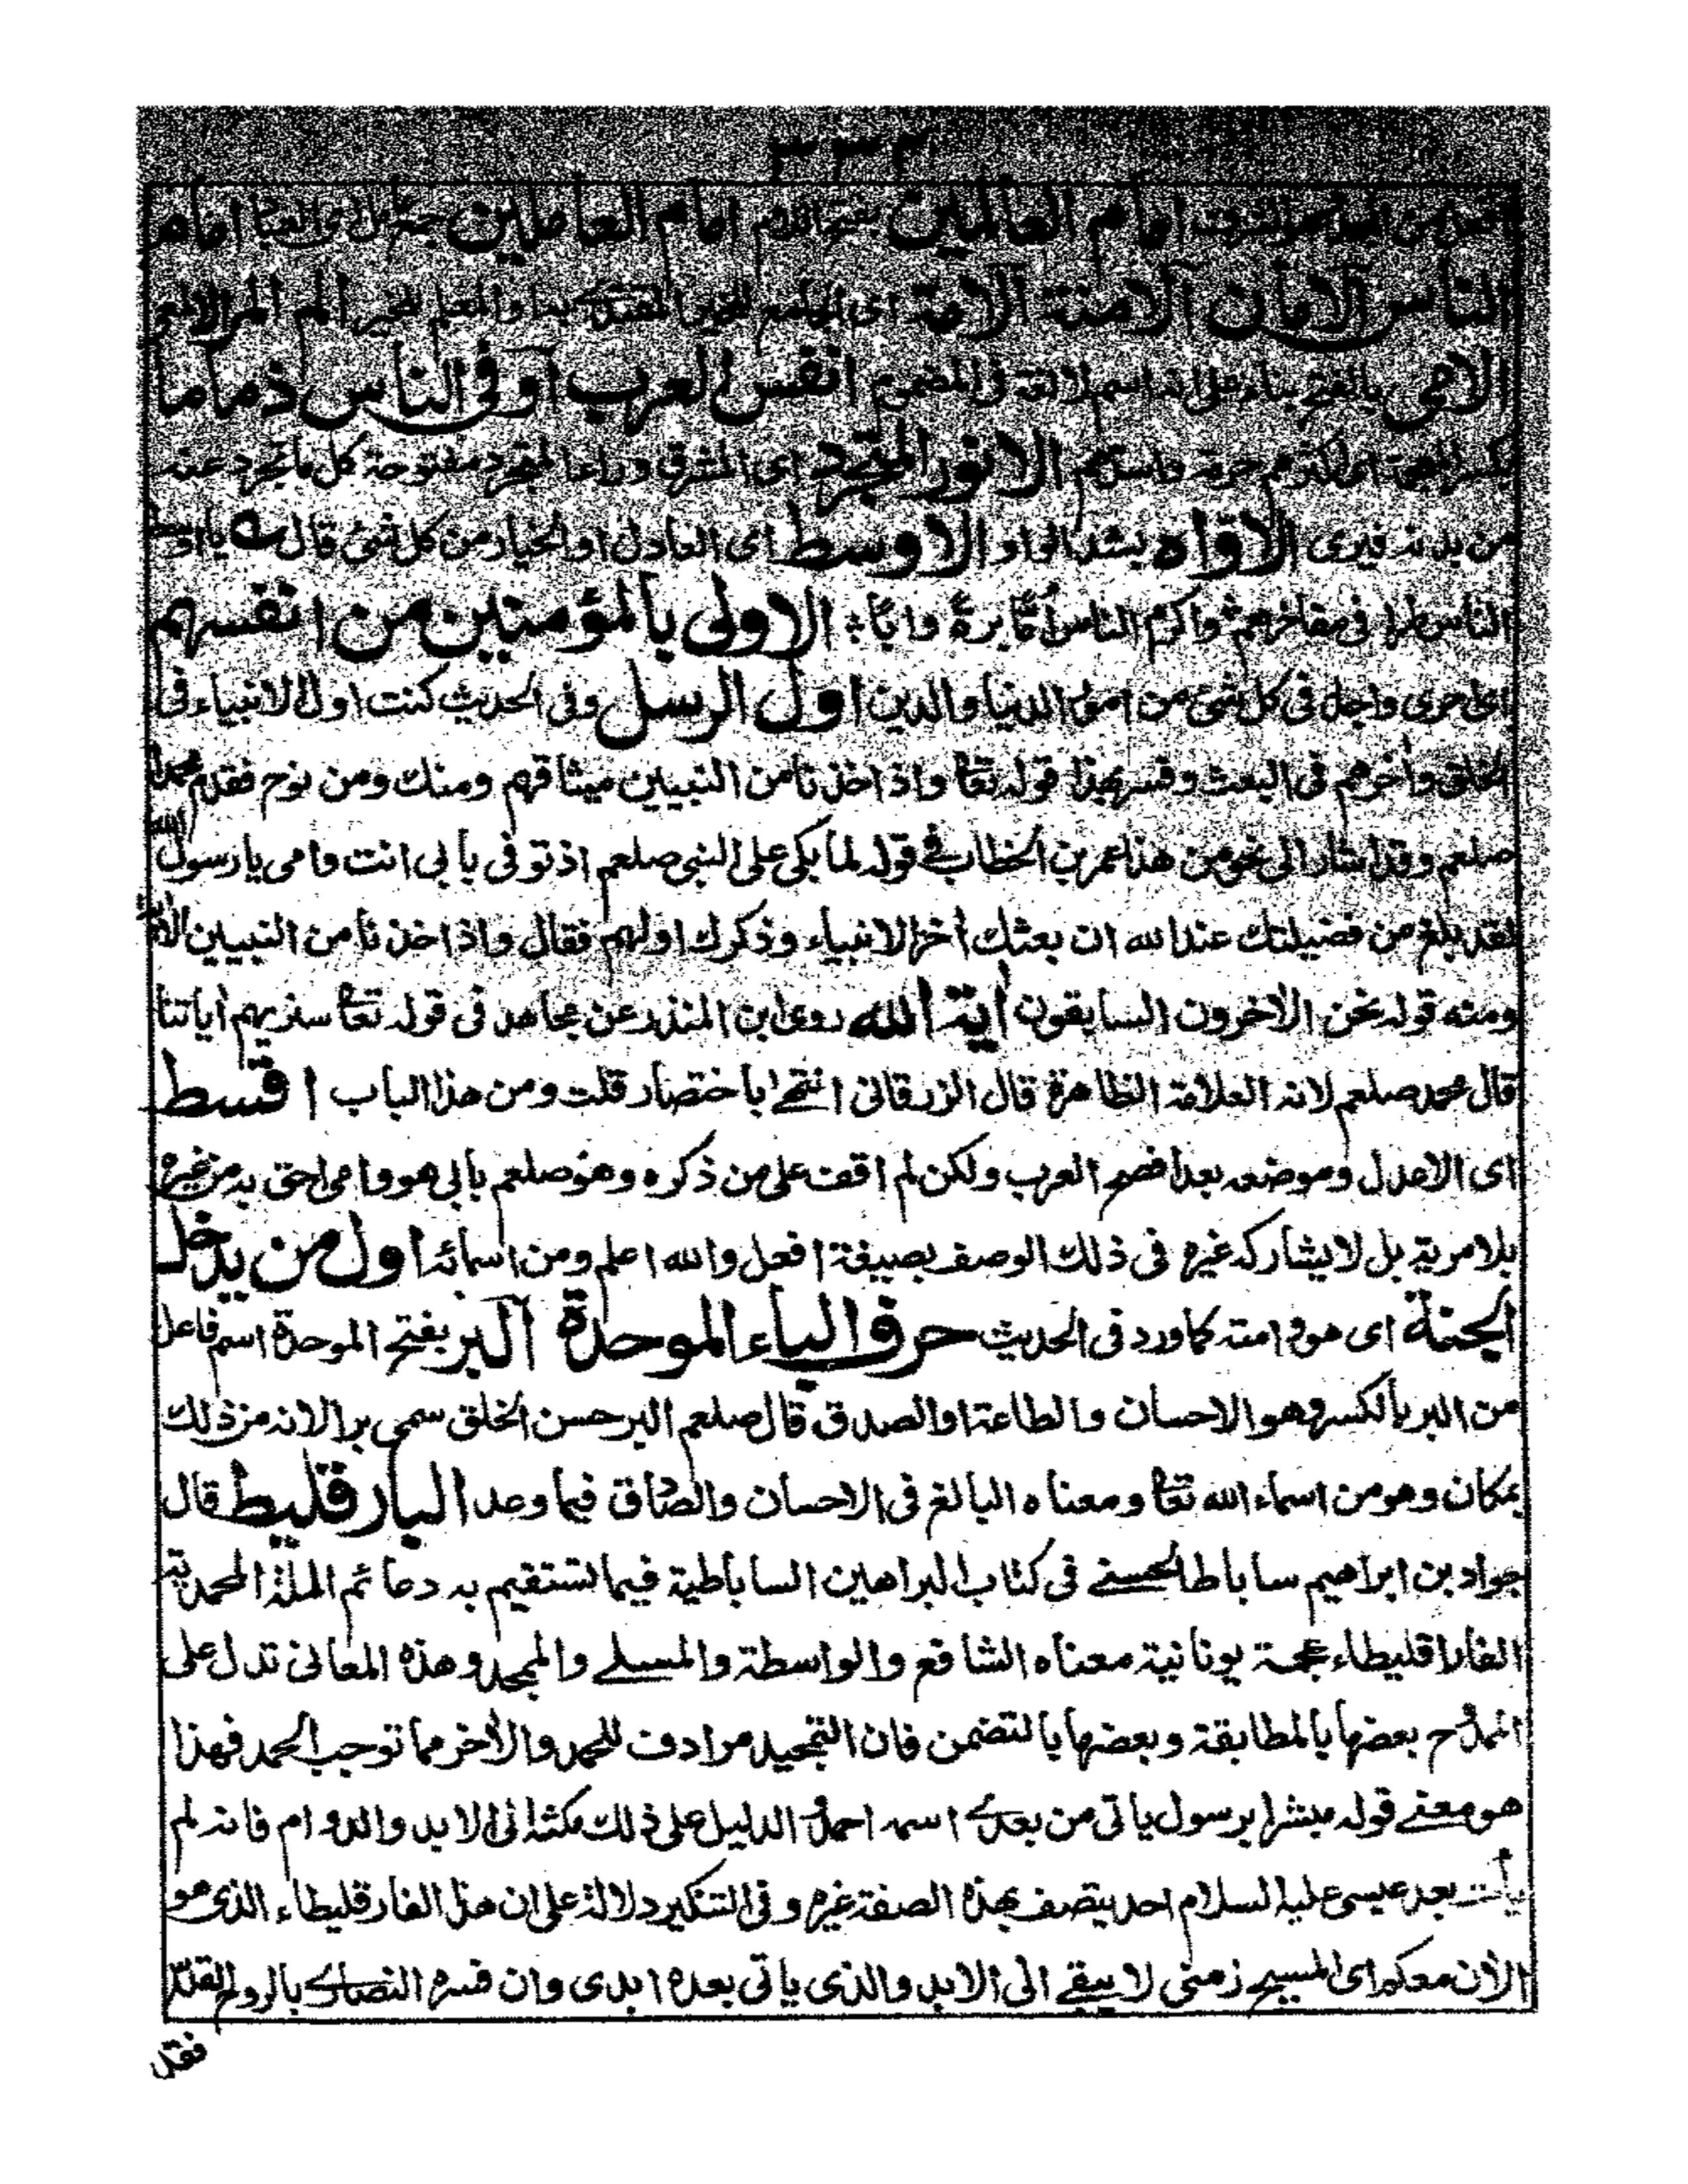 ٣٣٣
امام العالمين بفتح اللام امام العاملين جمع امام
الناس الامان الامنة الامة اى الجامع للخير المقتدى به او المعلم للخير الم المر الالمعى
الاحى بالفتح بناء على انه اسم لا لغة فى المضموم انفس العرب اوفى الناس ذماما
بكسر المعجمة اى اكثرهم حرمة الانور المتجرد اى المشرق وراء المتجرد مفتوحة كل ما تجرد عنه
من بدنه فيرى الاواه بشد الواو الاوسط اى العادل او الخيار من كل شئ قال يا اوسط
الناس طرا فى مفاخرهم واكرم الناس اما برة وابا الاولى بالمؤمنين من انفسهم
اى احرى واجل فى كل شئ من امور الدنيا والدين اول الرسل وفى الحديث كنت اول الانبياء فى
الخلق وأخرهم فى البعث وفسر بهذا قوله تعا واذ اخذنا من النبيين ميثاقهم ومنك ومن نوح فقدم محمدا
صلعم وقد اشار الى نحو من هذا عمر بن الخطاب فى قوله لما بكى على النبى صلعم اذ توفى بابى انت وامى يا رسول الله
لقد بلغ من فضيلتك عند الله ان بعثك أخر الانبياء وذكرك اولهم فقال واذ اخذنا من النبيين الآية
ومنه قوله نحن الأخرون السابقون أية الله روى ابن المنذر عن مجاهد فى قوله تعا سنريهم أياتنا
قال محمد صلعم لانه العلامة الظاهرة قال الزرقانى انتهى باختصار قلت ومن هذا الباب اقسط
اى الاعدل وموضعه بعد افصح العرب ولكن لم اقف على من ذكره وهو صلعم بابى هو وامى احق به من غيره
بلا مرية بل لا يشاركه غيره فى ذلك الوصف بصيغة افعل والله اعلم ومن اسمائه اول من يدخل
الجنة اى هو وامته كما ورد فى الحديث حرف الباء الموحدة البر بفتح الموحدة اسم فاعل
من البر بالكسر وهو الاحسان والطاعة او الصدق قال صلعم البر حسن الخلق سمى برا لانه من ذلك
بمكان وهو من اسماء الله تعا ومعناه البالغ فى الاحسان والصادق فيما وعد البارقليط قال
جواد بن ابراهيم ساباط الحسنے فى كتاب البراهين الساباطية فيما تستقيم به دعائم الملة المحمدية
الفاراقليطاء عجمة يونانية معناه الشافع والواسطة والمسلے والممجد وهذه المعانى تدل على
بعضها بالمطابقة وبعضها بالتضمن فان التمجيد مرادف للحمد والأخر مما توجب الحمد فهذا
هو معنے قوله مبشرا برسول ياتى من بعدے اسمه احمد و الدليل على ذلك مكثه الى الابد والدوام فانه لم
يأت بعد عيسى عليه السلام احد يتصف بهذه الصفة غيره وفى التنكير دلالة على ان هذا الفارقليطاء الذى هو
الان معكم اى المسيح زمنى لا يبقے الى الابد والذى ياتى بعده ابدى وان فسره النصارے بالروح القدس
فقد